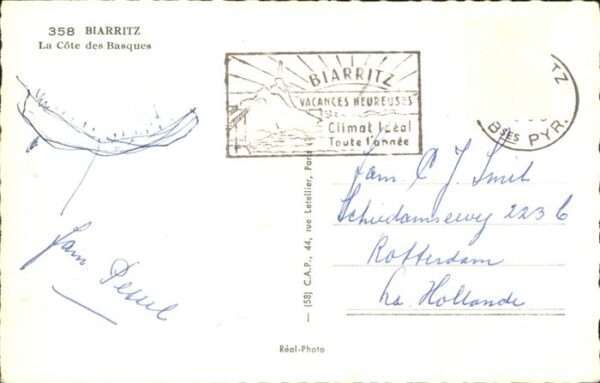 358 BIARRITZ
La Côte des Basques
BIARRITZ
"VACANCES HEUREUSES"
Climat Idéal
Toute l'année
TZ
Bses PYR.
Fam C J. Smit
Schiedamseweg 223 b
Rotterdam
La Hollande
Fam
(58) C.A.P., 44, rue Letellier, Paris
Réal-Photo